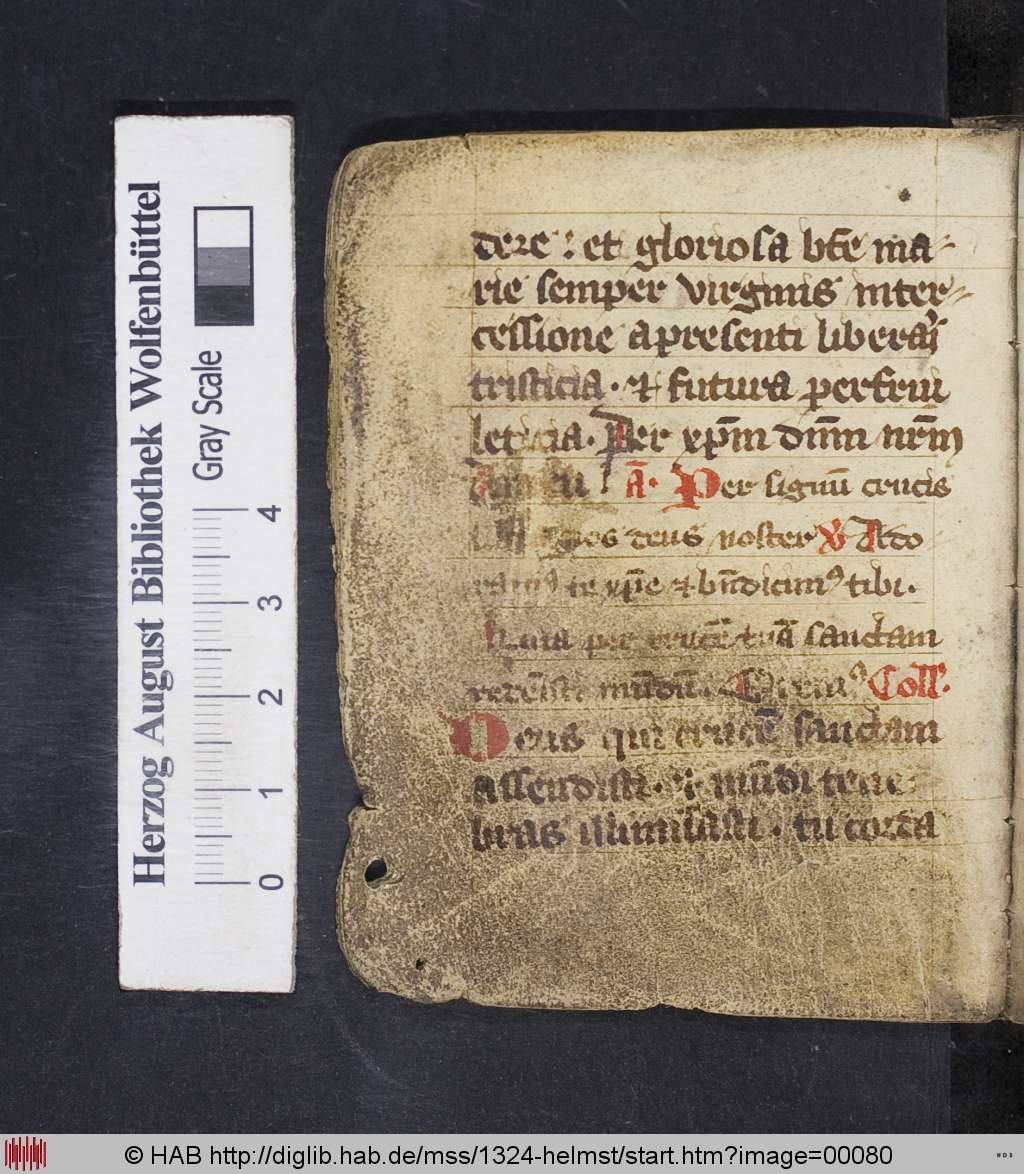 Herzog August Bibliothek Wolfenbüttel
Gray Scale
0 1 2 3 4
dere : et gloriosa bt̄e ma-
rie semper virginis inter-
cessione a presenti liberar
tristicia . et futura perfrui
leticia . Per xp̄m dn̄m nr̄m
A̅. Per signū crucis
deus noster V Ado
te xp̄e et bn̄dicimꝰ tibi .
Quia per crucē tuā sanctam
redemisti mūdū . Coll̄.
Deus qui crucē sanctam
assendisti . et mūdi tene
bras illuminasti . tu corda
© HAB http://diglib.hab.de/mss/1324-helmst/start.htm?image=00080